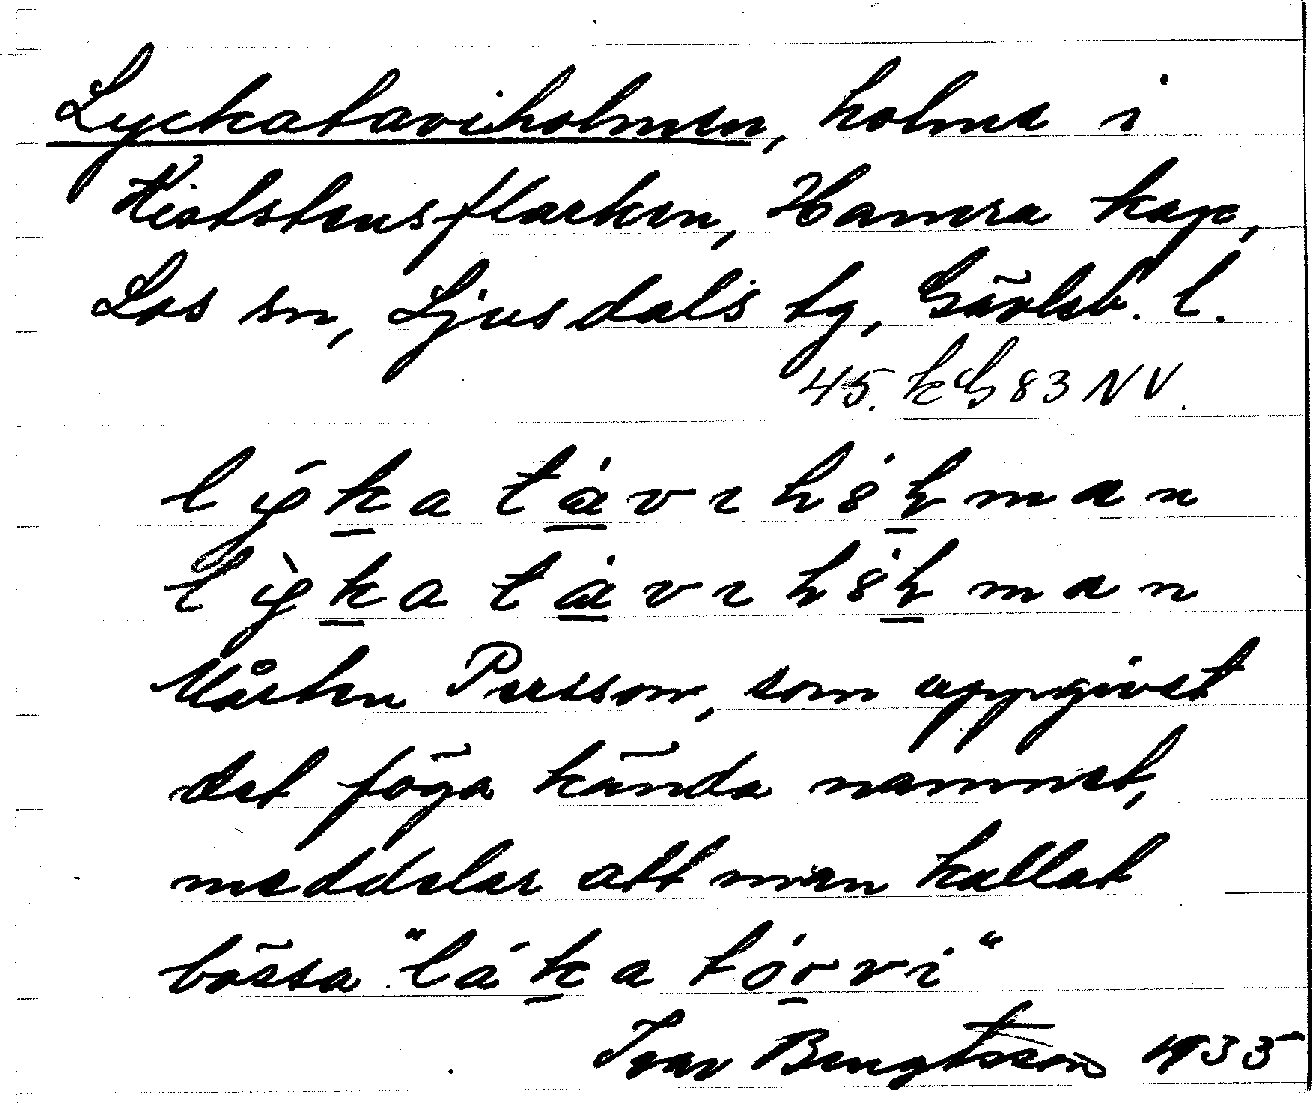 Lyckataviholmen, holme i
Kiststensflarken, Hamra kap,
Los sn, Ljusdals tg, Gävleb. l.
45. kb 83 NV.
lyka távɩhólman
lỳka távɩhólman
Mårten Persson, som uppgivit
det föga kända namnet,
meddelar att man kallat
bössa "láka tórvi"
Ivar Bengtsson 1935